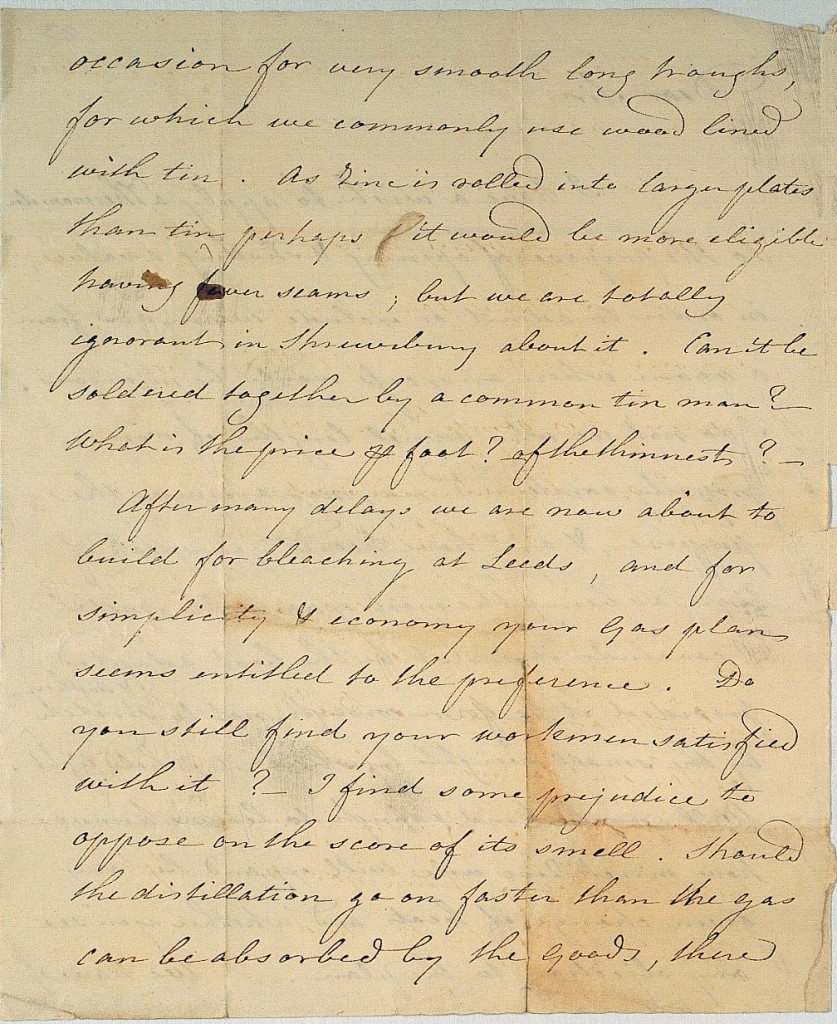 occasion for very smooth long troughs,
for which we commonly use wood lined
with tin. As Zinc is rolled into larger plates
than tin perhaps it would be more eligible
having fewer seams; but we are totally
ignorant in Shrewsbury about it. Can it be
soldered together by a common tin man? —
What is the price ⅌ foot? of the thinnest? —
After many delays we are now about to
build for bleaching at Leeds, and for
simplicity & economy your gas plan
seems entitled to the preference. Do
you still find your workmen satisfied
with it? — I find some prejudice to
oppose on the score of its smell. Should
the distillation go on faster than the gas
can be absorbed by the goods, there